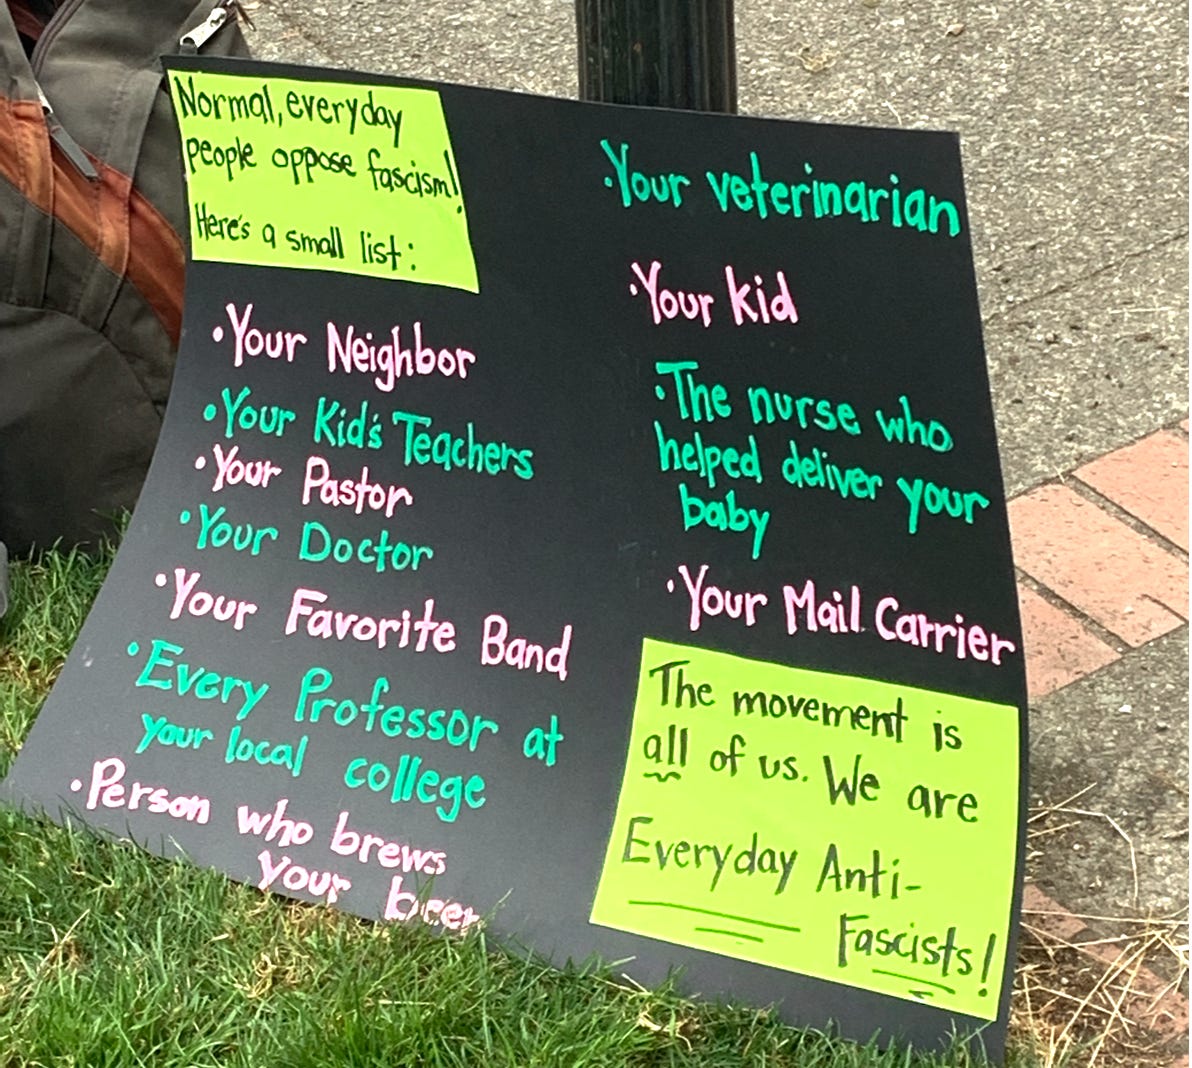 Normal, everyday
people oppose fascism!
Here's a small list:
• Your Neighbor
• Your Kid's Teachers
• Your Pastor
• Your Doctor
• Your Favorite Band
• Every Professor at
your local college
• Person who brews
your beer
• Your veterinarian
• Your kid
• The nurse who
helped deliver your
baby
• Your Mail Carrier
The movement is
all of us. We are
Everyday Anti-
Fascists!